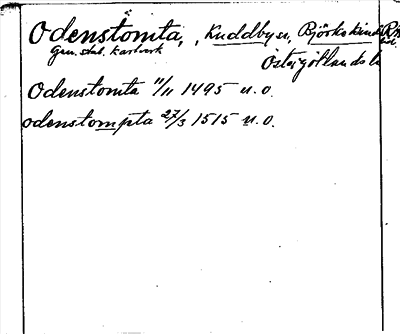 Odenstömta, , Kuddby sn, Björkekinds
Gen. stab. kartverk
Östergötlands l
Odenstomta 11/11 1495 u. o.
odenstompta 27/3 1515 u. o.